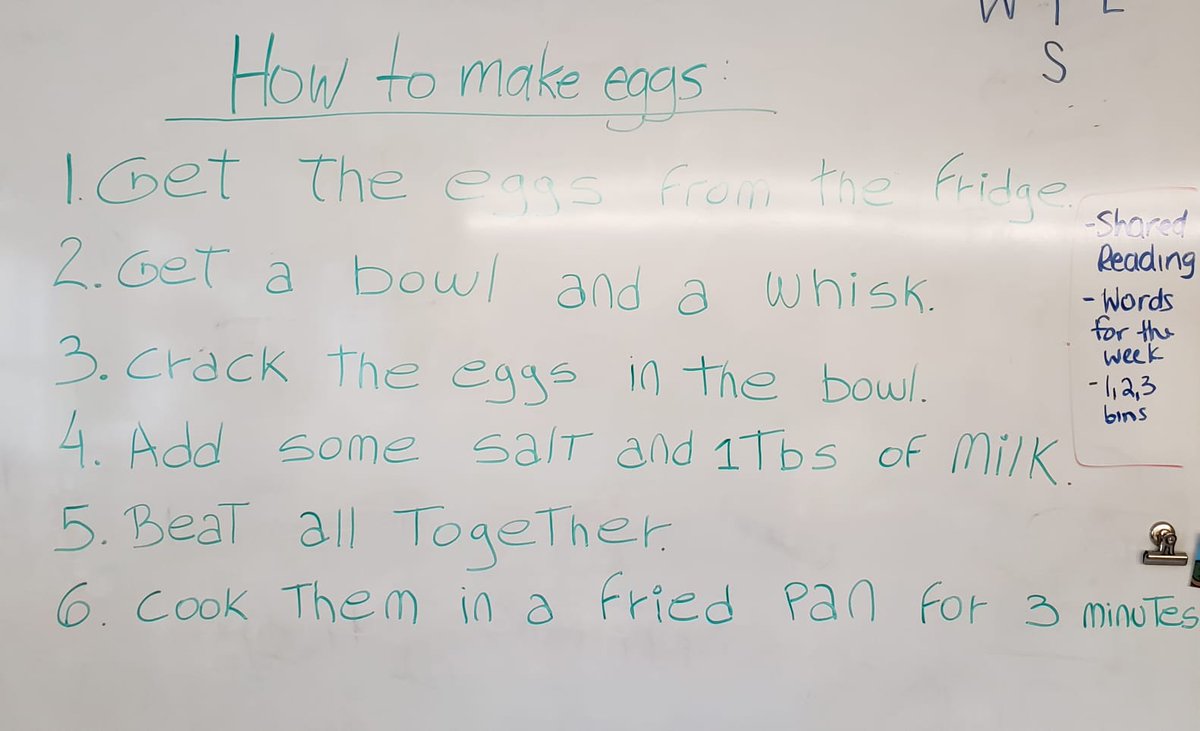 How to make eggs:
1. Get the eggs from the fridge.
2. Get a bowl and a whisk.
3. Crack the eggs in the bowl.
4. Add some salt and 1Tbs of Milk.
5. Beat all Together.
6. Cook Them in a fried pan for 3 minutes
S
-Shared
Reading
- Words
for the
week
- 1,2,3
bins